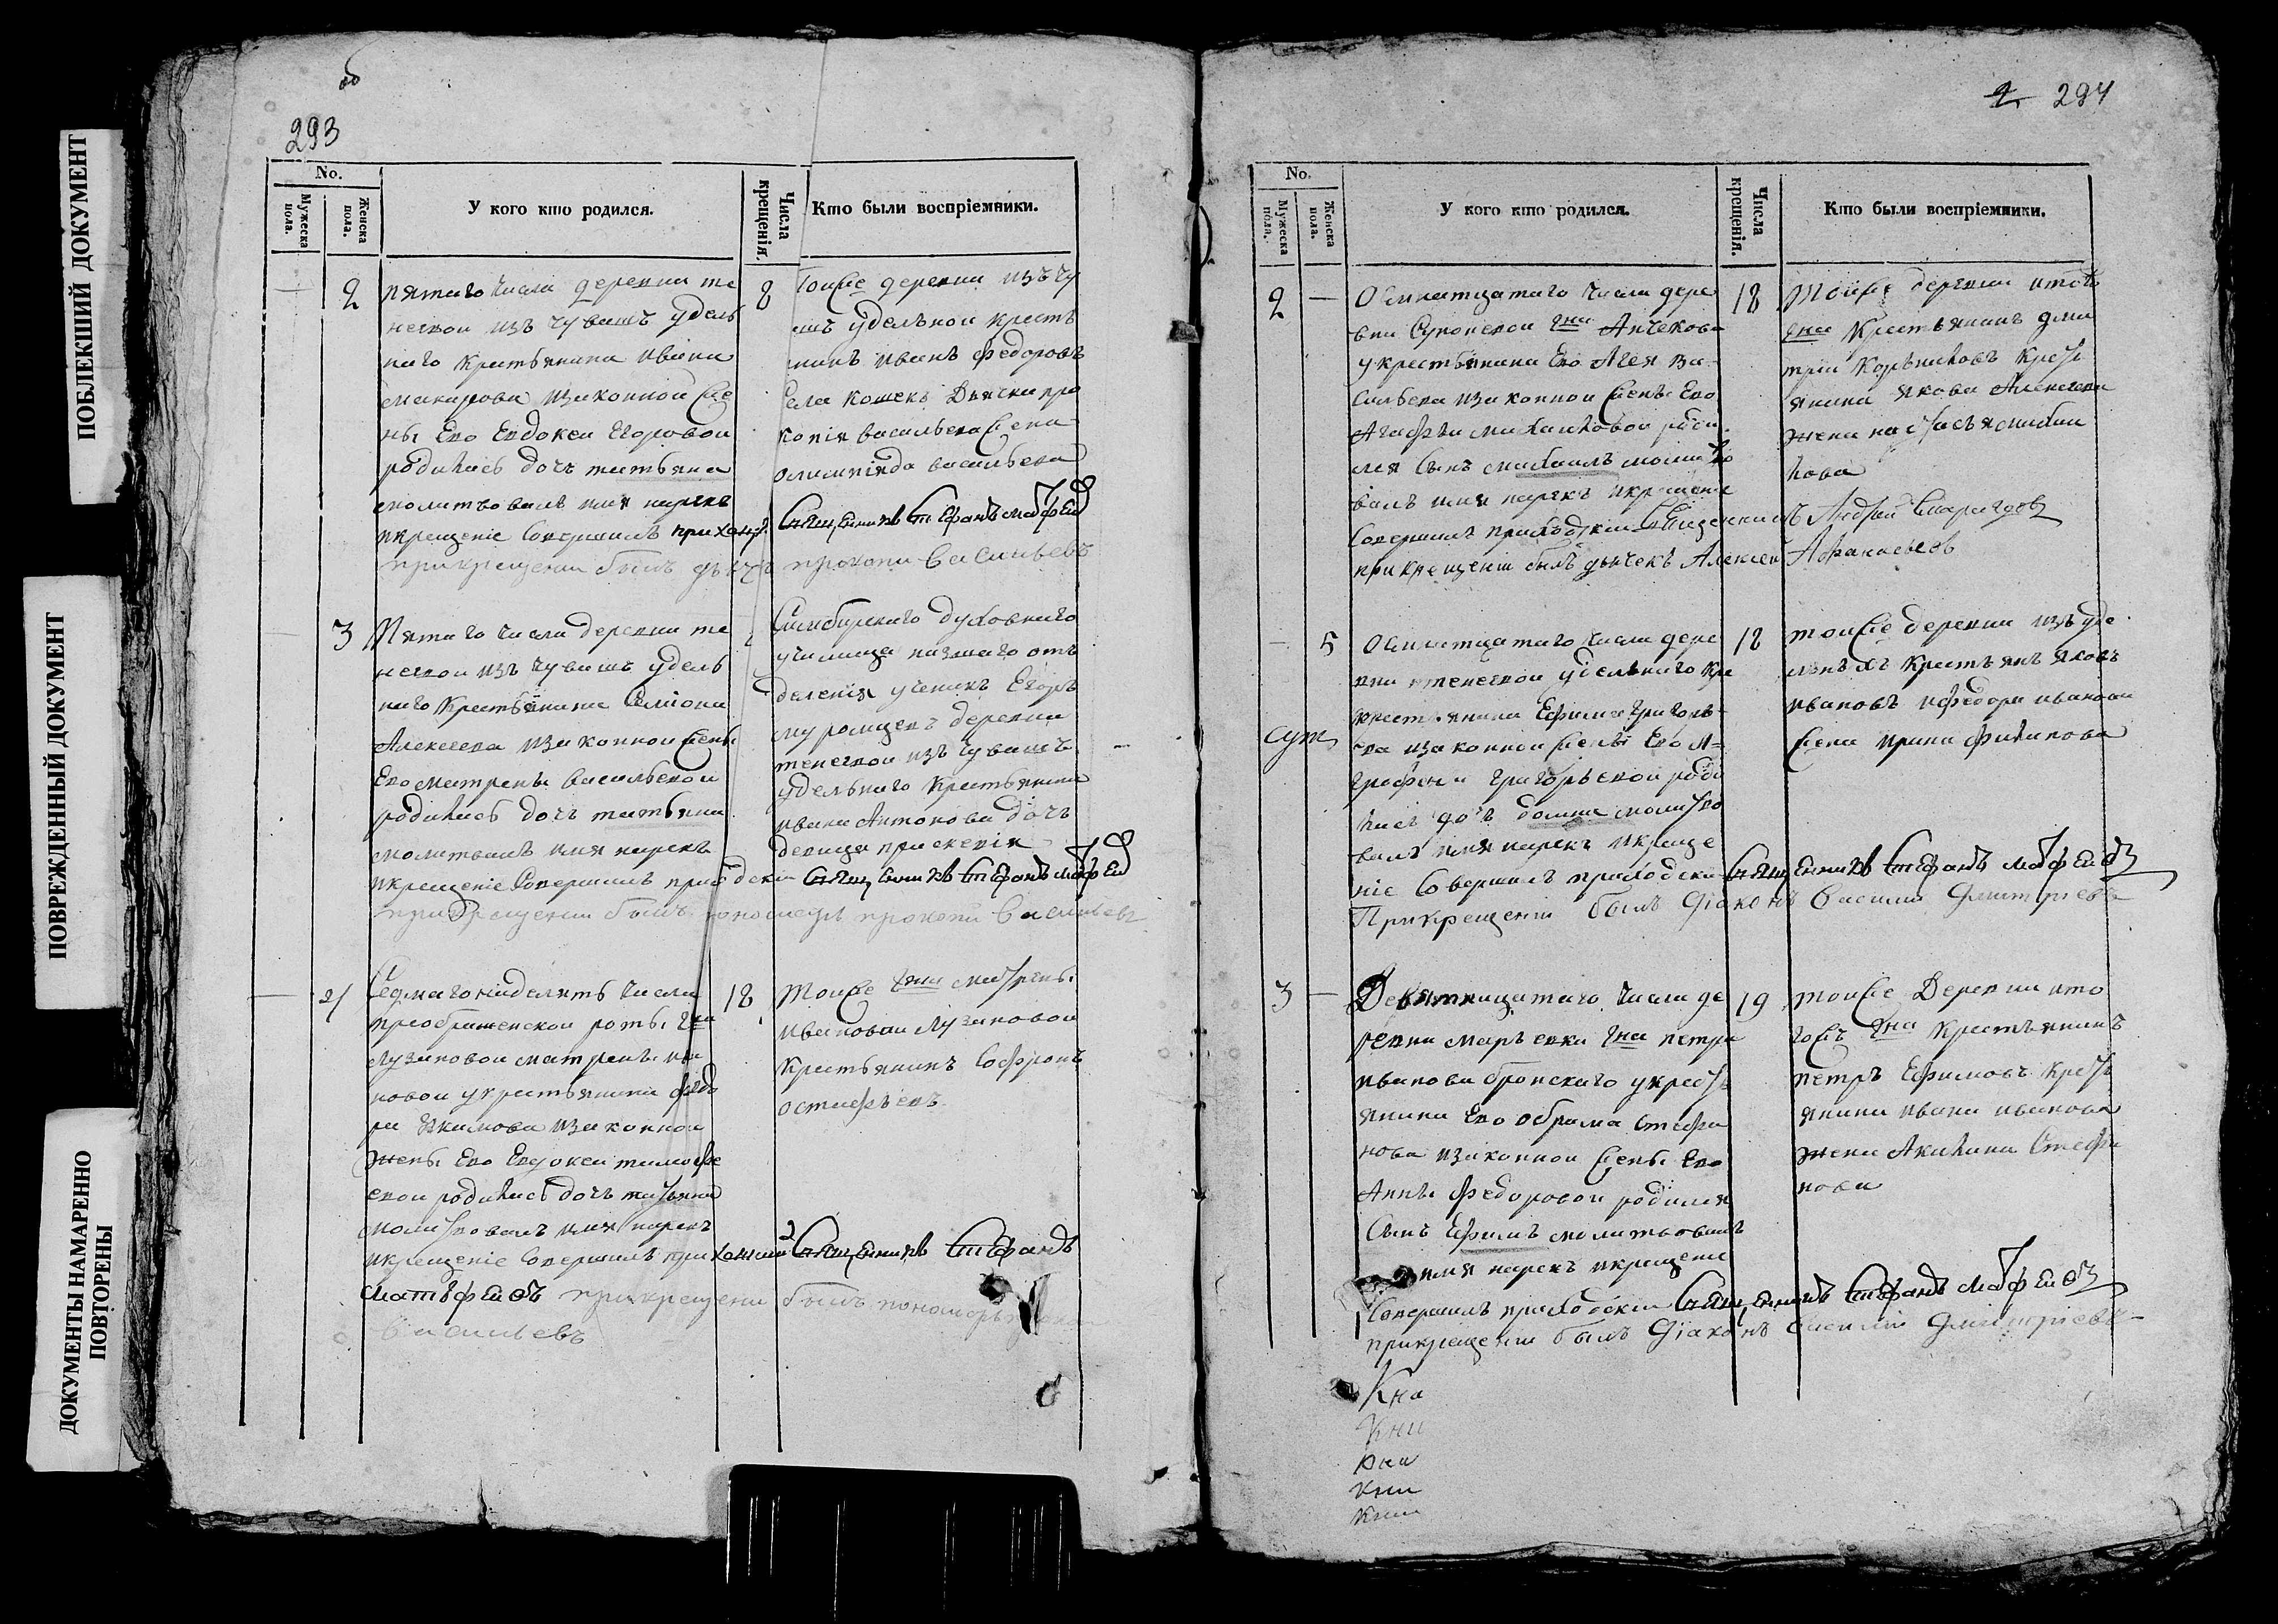 ПОБЛЕКШИЙ ДОКУМЕНТ
ПОВРЕЖДЕННЫЙ ДОКУМЕНТ
ДОКУМЕНТЫ НАМАРЕННО
ПОВТОРЕНЫ
об
293
No.
Мужеска пола.
Женска пола.
У кого кто родился.
Числа крещенія.
Кто были воспріемники.
2
пятаго числа деревни те
неевои изъ чувашъ удель
наго крестьянина ивана
изаконной же
ны Ево Евдокеи Егоровои
родилась дочъ татьяна
молитвовалъ имя нарекъ
икрещеніе совершилъ приходской
прикрещении былъ
8
тоиже деревни изъ чу
ашъ удельнои крестъ
нинъ иванъ федоровъ
села кошекъ Дьячка про
копія васильева жена
олимпіяда васильева
Священникъ Стефанъ Матфеев
прокопи Васильевъ
3
Пятаго числа деревни те
неевои изъ чувашъ удель
наго крестьянина Симіона
Алексеева изаконнои жены
Ево матрены васильевои
родилась дочъ татьяна
молитвалъ имя нарекъ
икрещеніе совершилъ приходски
прикрещении былъ пономарь прокопи Васильевъ
Симбирскаго духовнаго
училища низшаго отъ
деленія ученикъ Егоръ
муромцевъ деревни
тенеевои изъ чувашъ
удельнаго крестьянина
ивана Антонова дочъ
девица
Священникъ Стефанъ Матфеев
4
числа
преображенскои роты гжи
лузиновои матрены ива
новои укрестьянина федо
ра Якимова изаконнои
жены Ево Евдокеи тимофе
евои родилась дочъ татьяна
молитвовалъ имя нарекъ
икрещеніе совершилъ приходский
Матвфеивъ прикрещени былъ пономарь
Васильевъ
18
тоиже гжи матрены
ивановои лузиновои
крестьянинъ Софронъ
остафьевъ
Священникъ Стефанъ
294
No.
Мужеска пола.
Женска пола.
У кого кто родился.
Числа крещенія.
Кто были воспріемники.
2
Осмнатцатаго числа дере
вни гна
укрестьянина Ево Агея Ва
сильева изаконнои жены Ево
Агафьи михаиловои роди
лся сынъ михаилъ молитво
валъ имя нарекъ икрещение
совершилъ приходскии Священникъ Андрей
прикрещеніи былъ дьячекъ Алексеи Афанасьевъ
18
тоиже деревни итогожъ
гна крестьянинъ дми
трии крест
янина якова Алексеева
жена настасья
лова
5
Осмнатцатаго числа дере
вни тенеевои удельнаго кре
крестьянина Ефима Григорь
ева изаконнои жены Ево А
графены григорьевои роди
лась дочъ домна молитво
валъ имя нарекъ икреще
ніе Совершилъ приходски Священникъ Стефанъ Матфеивъ
Прикрещеніи былъ Діаконъ Василии Дмитріевъ
18
тоиже деревни изъ уде
льныхъ крестьянъ яковъ
ивановъ ифедора иванова
жена ирина филипова
3
Девятнацатаго числа де
ревни марьевки гна петра
иванова бронскаго укресть
янина Ево
нова изаконнои жены Ево
Анны федоровои родился
Сынъ Ефимъ молитвовалъ
имя нарекъ икрещение
Совершилъ приходскии Священникъ Стефанъ Матфеивъ
прикрещении былъ Діаконъ Василіи Дмитріевъ
19
тоиже Деревни ито
гожъ гна крестьянинъ
петръ Ефимовъ крест
янина ивана иванова
жена Акилина Стефа
нова
Кна